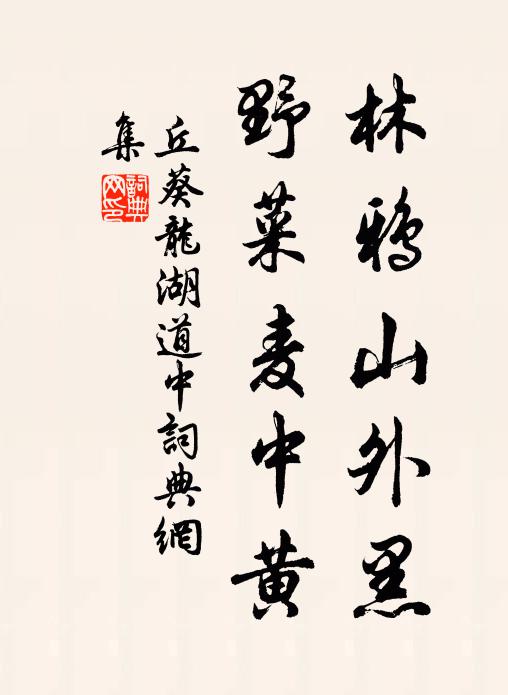 林鴉山外黑
野菜麦中黄
丘葵龍湖道中詞典網
集
詞典
网印